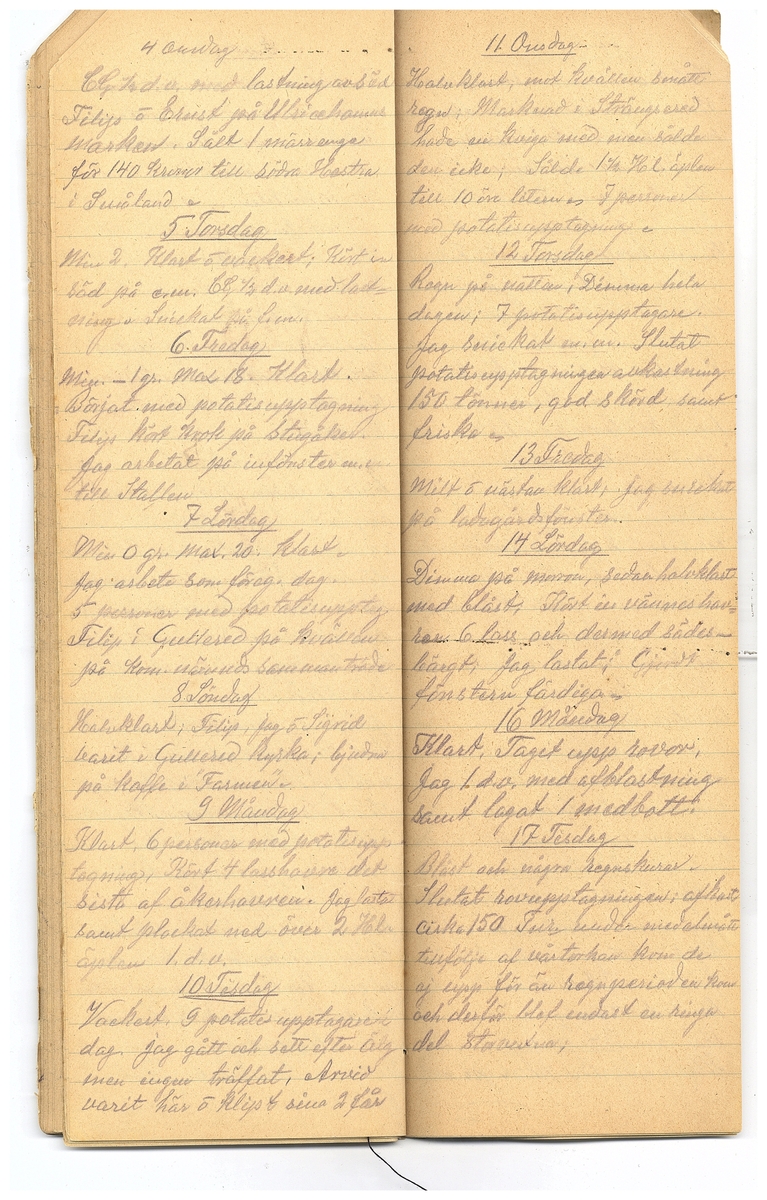 4 Onsdag
CG ½ d.v. med lastning av säd
Filip o Ernst på Ulricehamns
marken. Sålt 1 märr enga
för 140 kronor till södra Hestra
i Småland
5 Torsdag
Min 2. Klart o vackert; Kört in
säd på e.m. CG ½ d.v. med last-
ning. Snickat på f.m.
6. Fredag
Min. -1 gr. Max 18. Klart.
Börjat med potatisupptagning
Filip kört krok på stugåker.
Jag arbetat på infönster m.m
till Stallen
7 Lördag
Min 0 gr. Max. 20. Klart.
Jag arbete som föreg. dag.
5 personer med potatisupptag
Filip i Gullered på kvällen
på kom. nämnds sammanträde
8 Söndag
Halvklart; Filip, jag o Sigrid
varit i Gullered kyrka; bjudna
på kaffe i Farmen
9 Måndag
Klart, 6 personer med potatisupp
tagning, Kört 4 lass havre det
sista af åkerhavren. Jag lastat
samt plockat ned över 2 Hl.
äplen 1. d.v.
10 Tisdag
Vackert. 9 potatisupptagare i
dag. Jag gått och sett efter älg
men ingen träffat, Arvid
varit här o klipt sina 2 får
11. Onsdag
Halvklart, mot kvällen smått
regn; Marknad i Strängsered
hade en kviga med men sålde
den icke; Sålde 1½ Hl. äplen
till 10 öre litern 7 personer
med potatisupptagning
12 Torsdag
Regn på natten; Dimma hela
dagen; 7 potatisupptagare.
Jag snickat m.m. Slutat
potatisupptagningen avkastning
150 tönner, god skörd samt
friska
13 Fredag
Milt o nästan klart; Jag snickat
på ladugårdsfönster.
14 Lördag
Dimma på morron, sedan halvklart
med blåst. Kört in vännas hav-
ren 6 lass och dermed sädes-
bärgt; Jag lastat; Gjordt
fönstern färdiga
16 Måndag
Klart. Taget upp rovor,
Jag 1. d.v. med afblastning
samt lagat 1 medbott.
17 Tisdag
Blåst och några regnskurar.
Slutat rovupptagningen; afkast.
cirka 150 Tnr. under medelmått
tillfölje af vårtorkan kom de
ej upp för än regnperioden kom
och derför blef endast en ringa
del storvexna,